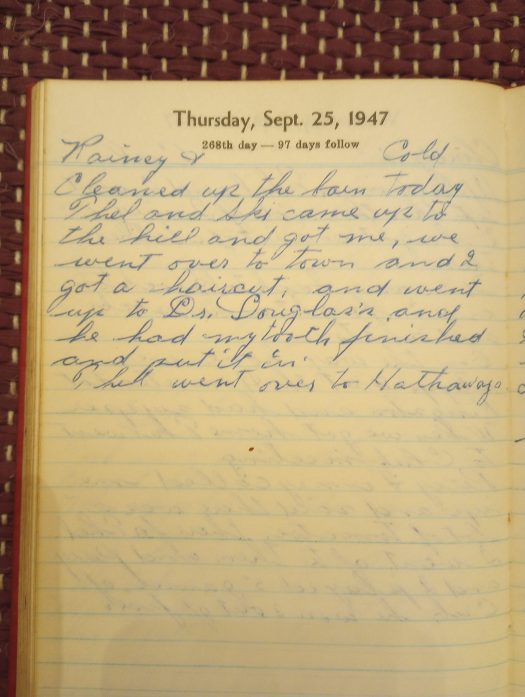 Thursday, Sept. 25, 1947
268th day — 97 days follow
Rainey & Cold
Cleaned up the barn today
Thel and Ski came up to
the hill and got me, we
went over to town and I
got a haircut, and went
up to Dr. Douglas's and
he had my tooth finished
and put it in.
Thel went over to Hathaways